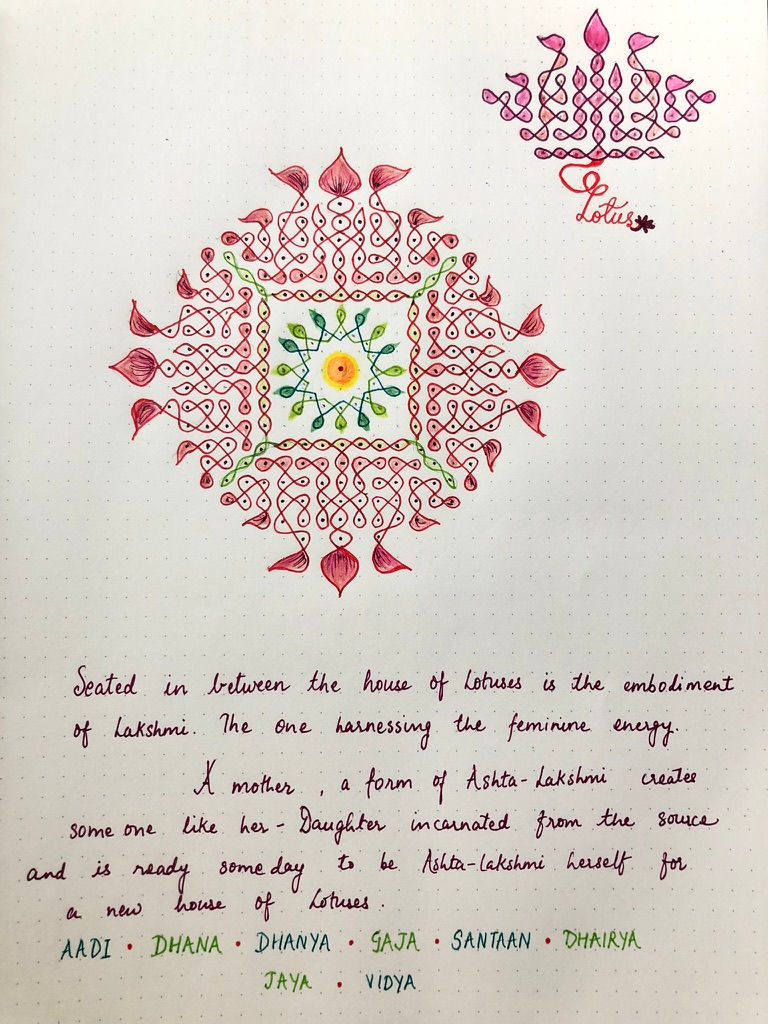 Lotus
Seated in between the house of Lotuses is the embodiment
of Lakshmi. The one harnessing the feminine energy.
A mother , a form of Ashta-Lakshmi creates
some one like her - Daughter incarnated from the source
and is ready some day to be Ashta-Lakshmi herself for
a new house of Lotuses.
AADI • DHANA • DHANYA • GAJA • SANTAAN • DHAIRYA
JAYA • VIDYA